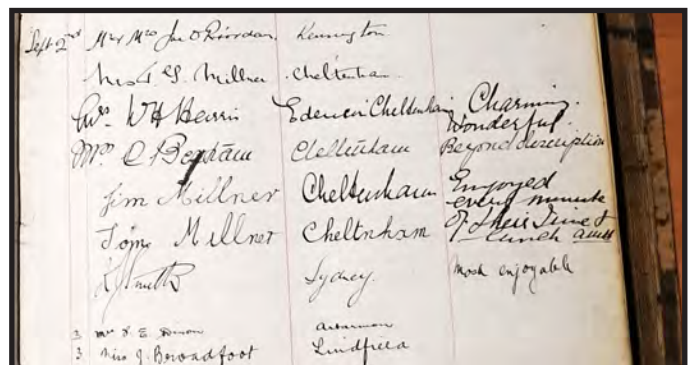 Sept 2nd Mr & Mrs Jno O'Riordan. Kensington.
Mrs T. G. Millner. Cheltenham.
Mrs. W H Harris Cheltenham Charming.
Wonderful.
Mrs C Cheltenham Beyond description
Jim Millner Cheltenham Enjoyed
every minute
Tom Millner Cheltnham of their time &
lunch
Smith Sydney. Most enjoyable
3 Mrs E.
3 Miss J. Broadfoot Lindfield